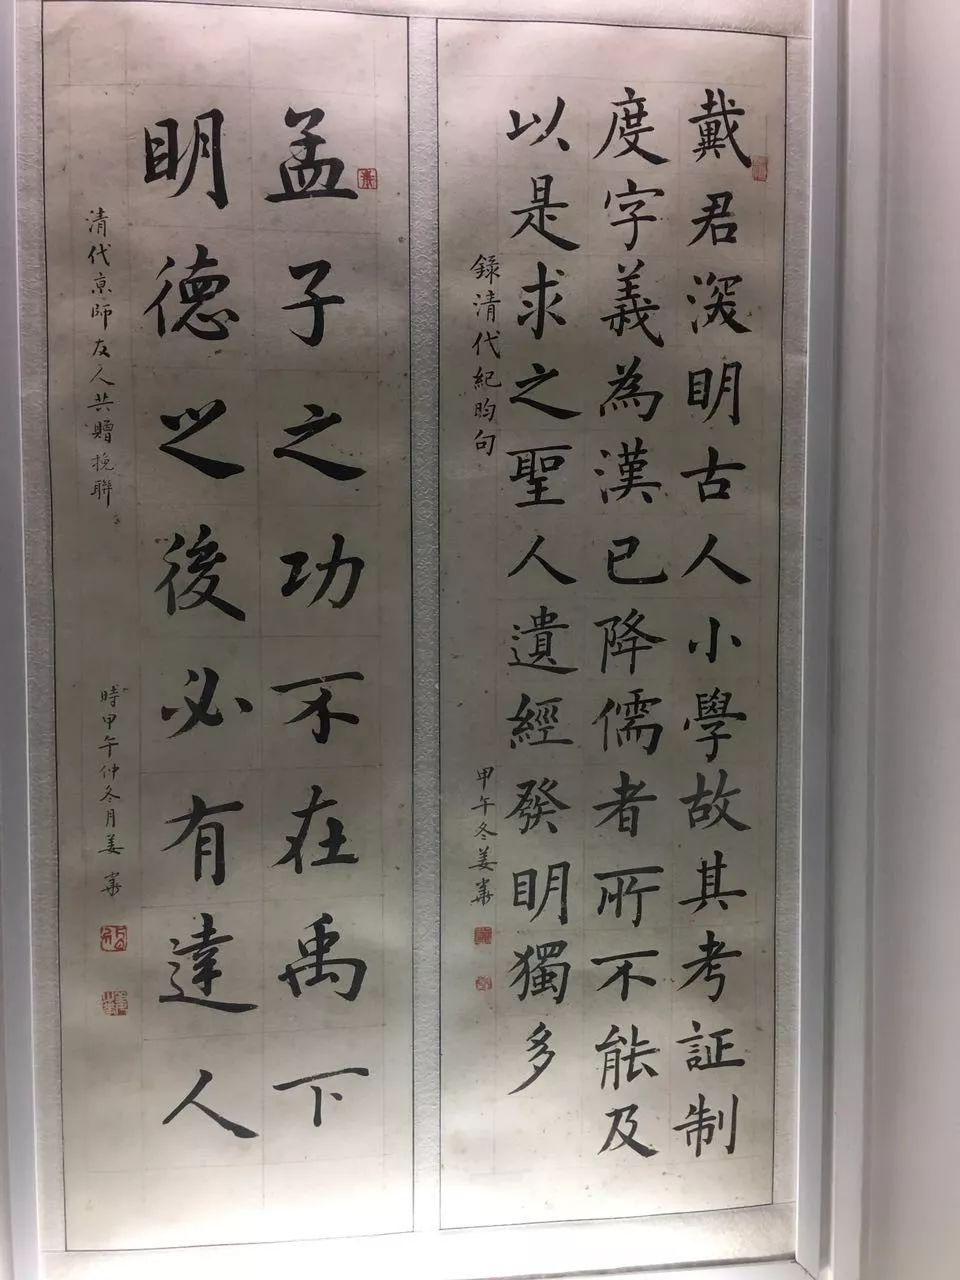 戴君深明古人小學故其考証制
度字義為漢已降儒者所不能及
以是求之聖人遺經發明獨多
錄清代紀昀句
甲午冬姜華
孟子之功不在禹下
明德之後必有達人
清代京師友人共贈挽聯
時甲午仲冬月姜華